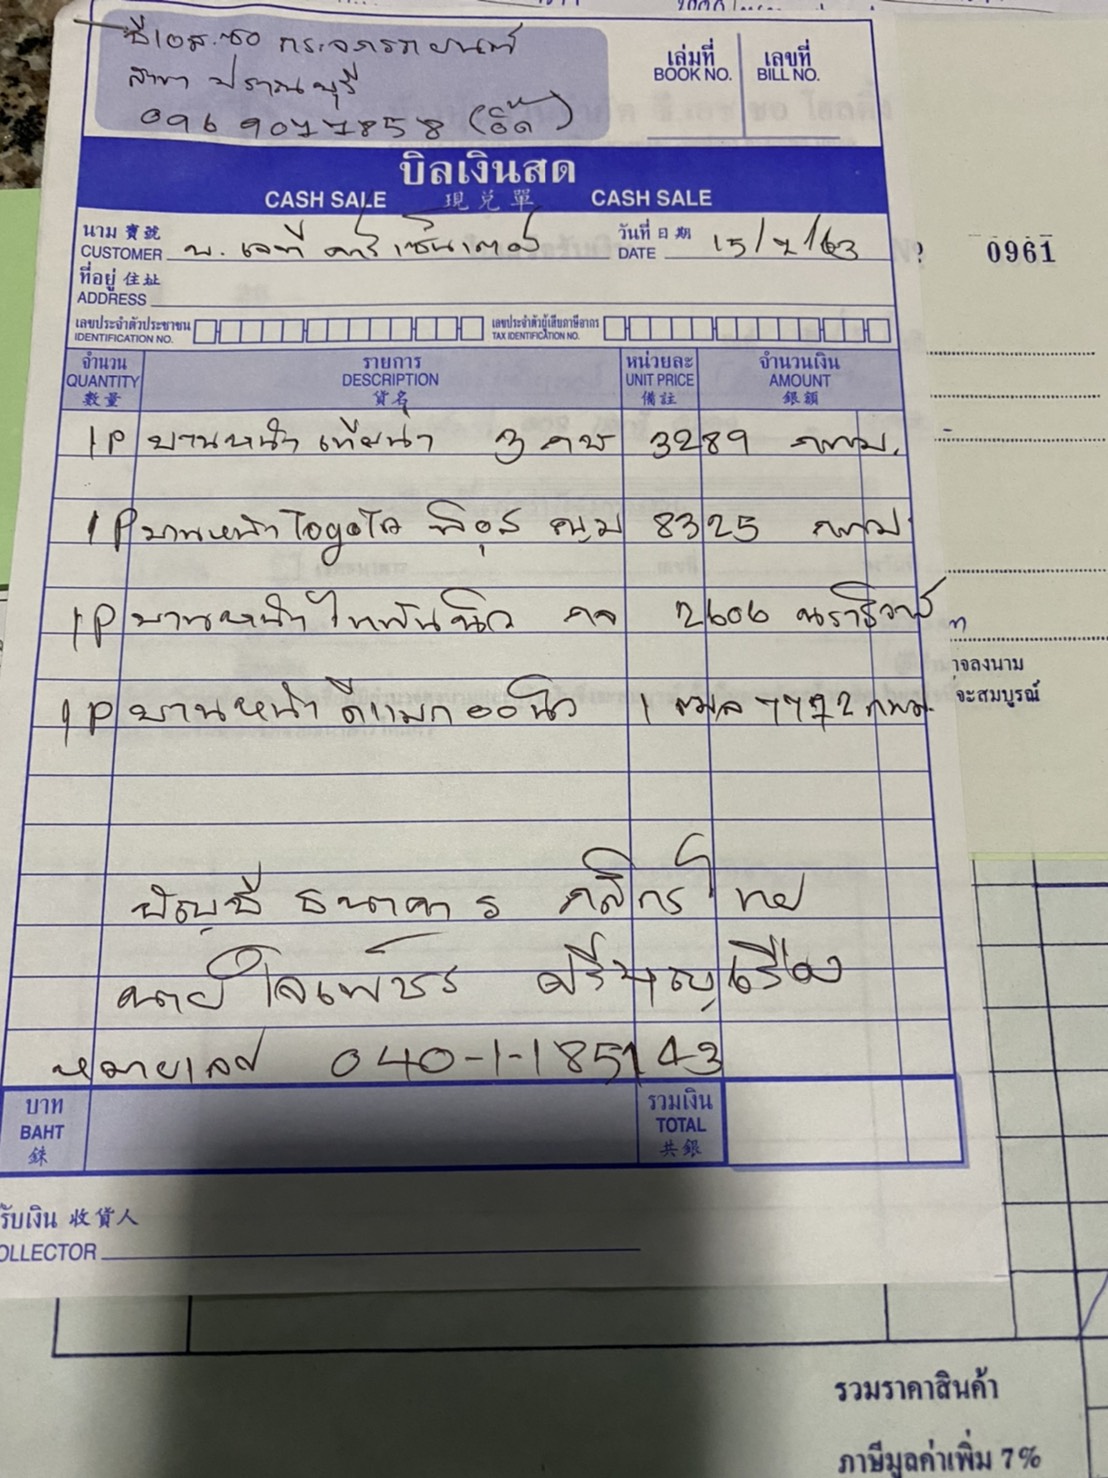 ซีเอส.ซอ กระจกรถยนต์
สาขา ปราณบุรี
096 9077858 (อ๊ด)
เล่มที่ เลขที่
BOOK NO. BILL NO.
บิลเงินสด
CASH SALE 現兌單 CASH SALE
นาม 寶號 วันที่ 日期
CUSTOMER บ. เจที คาร์เซ็นเตอร์ DATE 15/7/63
0961
ที่อยู่ 住址
ADDRESS
เลขประจำตัวประชาชน เลขประจำตัวผู้เสียภาษีอากร
IDENTIFICATION NO. TAX IDENTIFICATION NO.
จำนวน รายการ หน่วยละ จำนวนเงิน
QUANTITY DESCRIPTION UNIT PRICE AMOUNT
數量 貨名 備註 銀額
1P บานหน้า เทียน่า 3 กช 3289 กทม.
1P บานหน้า Toyota วีออส 8325 กทม.
1P บานหน้า ไทพันนิว กจ 2606 นราธิวาส
1P บานหน้า ดีแมกออนิว 1 ฒล 7772 กทม.
าจลงนาม
จะสมบูรณ์
บัญชี ธนาคาร กสิกรไทย
นาย โจเพชร ศรีบุญเรือง
หมายเลข 040-1-185143
บาท รวมเงิน
BAHT TOTAL
銖 共銀
รับเงิน 收貨人
OLLECTOR
รวมราคาสินค้า
ภาษีมูลค่าเพิ่ม 7%